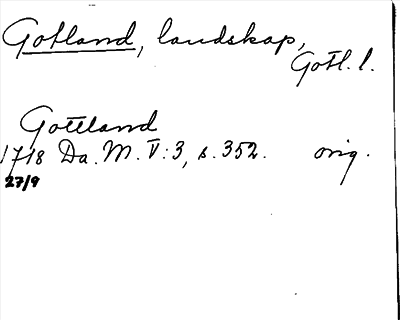 Gotland, landskap,
Gotl. l.
Gottland
1718 Da. M. V:3, s. 352. orig.
27/9